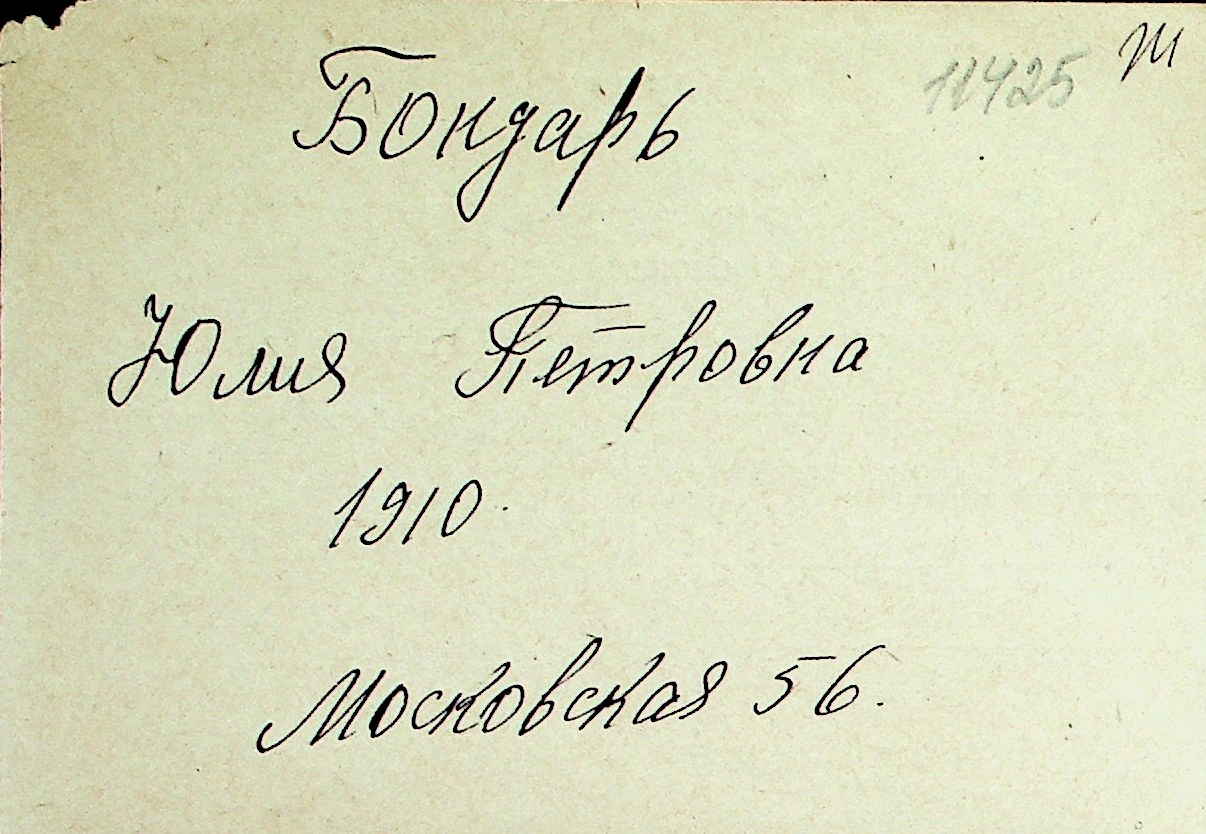 11425 т
Бондарь
Юлия Петровна
1910.
Московская 56.